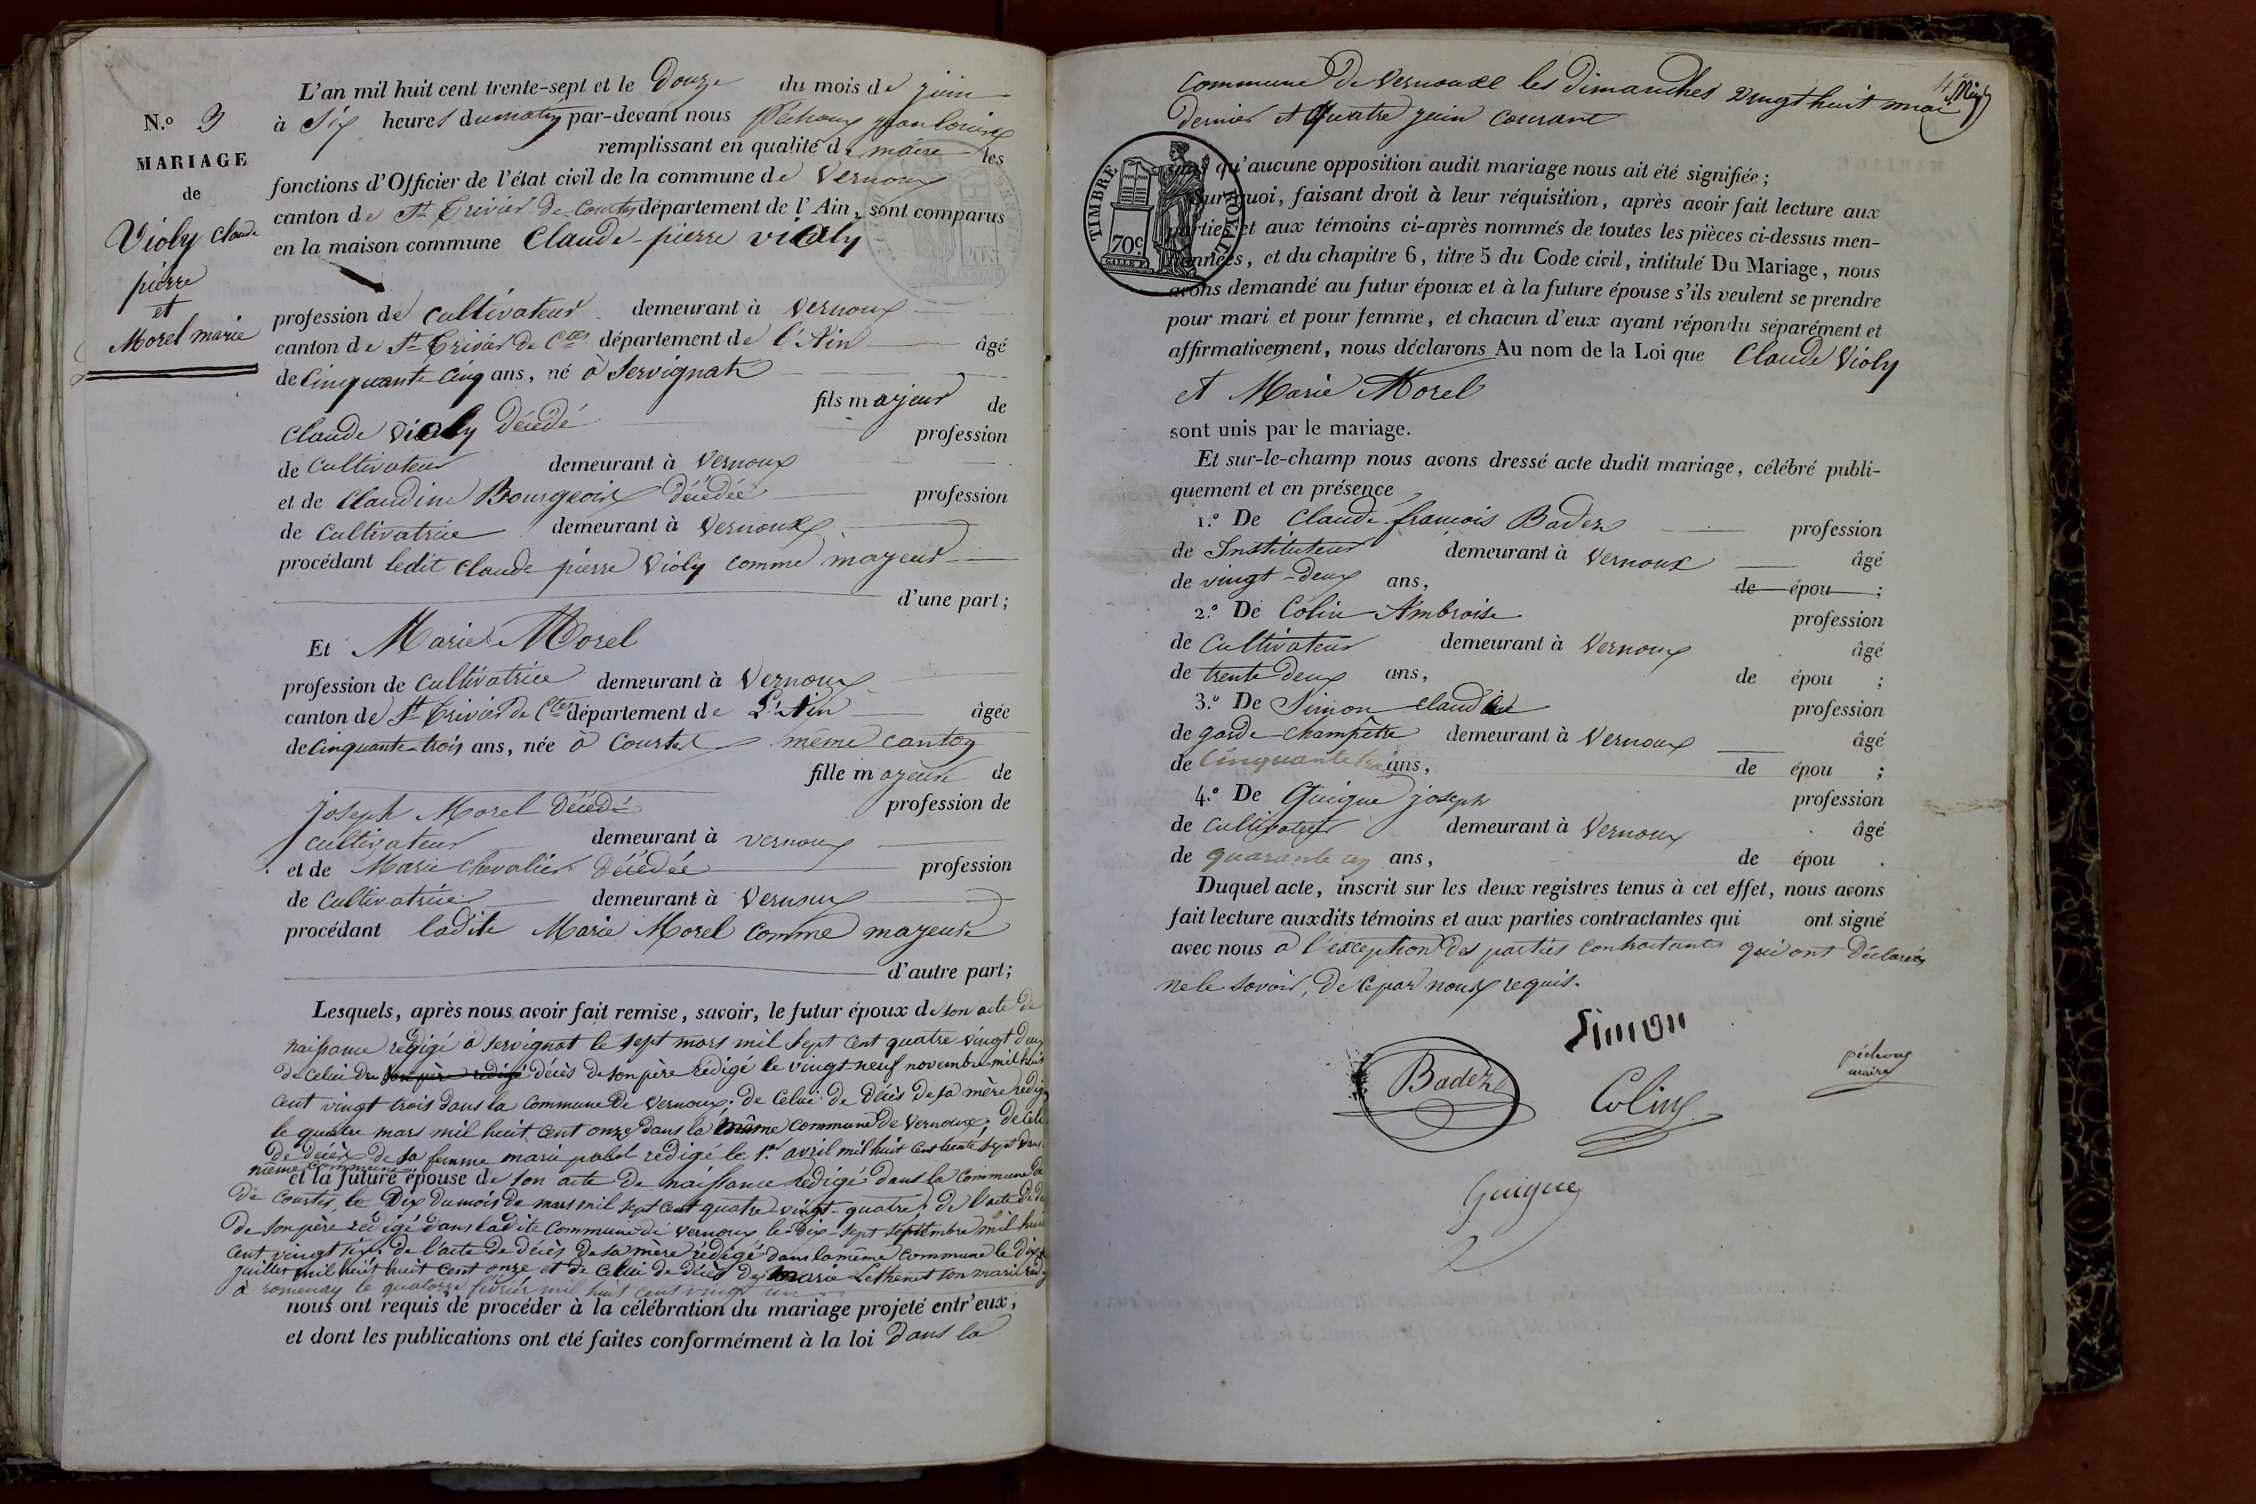 N.o 3
MARIAGE
de
Violy Claude
pierre
et
Morel marie
L'an mil huit cent trente-sept et le Douze du mois de juin
à Six heures du matin par-devant nous Péchoux jean louis
remplissant en qualité de maire les
fonctions d'Officier de l'état civil de la commune de Vernoux
canton de St Trivier de Courtes département de l'Ain, sont comparus
en la maison commune Claude-pierre violy
profession de cultivateur demeurant à Vernoux
canton de St Trivier de Ctes département de l'Ain âgé
de Cinquante Cinq ans, né à Servignat
fils majeur de
Claude Violy Décédé profession
de Cultivateur demeurant à Vernoux
et de Claudine Bourgeois Décédée profession
de Cultivatrice demeurant à Vernoux
procédant ledit Claude pierre Violy comme mayeur
d'une part ;
Et Marie Morel
profession de Cultivatrice demeurant à Vernoux
canton de St Trivier de Ctes département de L'Ain âgée
de Cinquante-trois ans, née à Courtes même canton
fille mayeure de
joseph Morel Décédé profession de
cultivateur demeurant à vernoux
et de Marie Chevalier Décédée profession
de Cultivatrice demeurant à Vernoux
procédant ladite Marie Morel comme mayeure
d'autre part ;
Lesquels, après nous avoir fait remise, savoir, le futur époux de son acte de
naissance redigé à servignat le sept mars mil sept cent quatre vingt deux
de celui du son père redigé décès de son père rédigé le vingt-neuf novembre mil huit
cent vingt trois dans la commune de Vernoux. de celui de décès de sa mère redigé
le quatre mars mil huit cent onze dans la même commune de Vernoux; de celui
de décès de sa femme marie redigé le 1er avril mil huit cent trente sept dans
même commune
et la future épouse de son acte de naissance redigé dans la commune de
de courtes, le dix du mois de mars mil sept cent quatre-vingt-quatre; de l'acte de
de son père redigé dans ladite commune de vernoux le dix-sept septembre mil huit
cent vingt six; de l'acte de décès de sa mère rédigé dans la même commune le dix
juillet mil huit huit cent onze et de celui de décès de marie Lethenet son mari
à romenay le quatorze février mil huit cent vingt un
nous ont requis de procéder à la célébration du mariage projeté entr'eux,
et dont les publications ont été faites conformément à la loi dans la
commune de Vernoux les dimanches vingt huit mai
dernier et quatre juin courant
TIMBRE ROYAL
70c
GALLE F.
sans qu'aucune opposition audit mariage nous ait été signifiée ;
Sur quoi, faisant droit à leur réquisition, après avoir fait lecture aux
parties et aux témoins ci-après nommés de toutes les pièces ci-dessus men-
tionnées, et du chapitre 6, titre 5 du Code civil, intitulé Du Mariage, nous
avons demandé au futur époux et à la future épouse s'ils veulent se prendre
pour mari et pour femme, et chacun d'eux ayant répondu séparément et
affirmativement, nous déclarons Au nom de la Loi que Claude Violy
et Marie Morel
sont unis par le mariage.
Et sur-le-champ nous avons dressé acte dudit mariage, célébré publi-
quement et en présence
1.o De Claude-francois Badez profession
de Instituteur demeurant à Vernoux âgé
de vingt-deux ans, de épou ;
2.o De Colin Ambroise profession
de Cultivateur demeurant à Vernoux âgé
de trente deux ans, de épou ;
3.o De Simon claude profession
de garde-champêtre demeurant à Vernoux âgé
de Cinquante trois ans, de épou ;
4.o De Guigue joseph profession
de cultivateur demeurant à Vernoux âgé
de quarante un ans, de épou .
Duquel acte, inscrit sur les deux registres tenus à cet effet, nous avons
fait lecture auxdits témoins et aux parties contractantes qui ont signé
avec nous a l'exception des parties contractantes qui ont déclarés
ne le savoir, de ce par nous requis.
Simon
Badez
Colin
péchoux
maire
Guigue